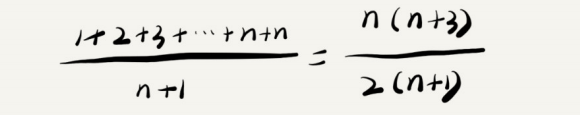 \frac{1+2+3+\cdots+n+n}{n+1} = \frac{n(n+3)}{2(n+1)}